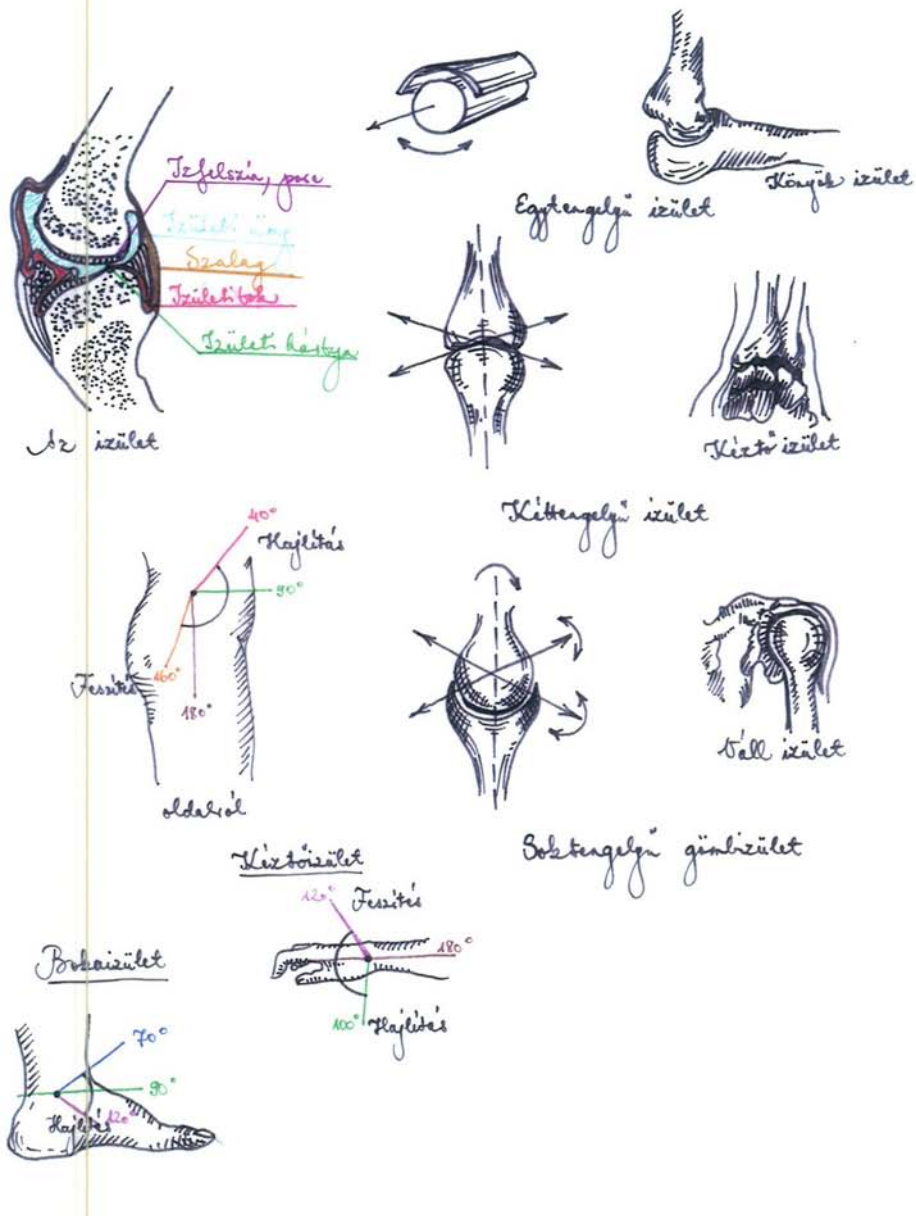 Izfelszin, porc
Izületi űreg
Szalag
Izületitok
Izületi hártya
Az izület
Egytengelyű izület
Könyök izület
Kéztő izület
Kéttengelyű izület
40°
Hajlítás
90°
Feszítés
160°
180°
oldalról
Váll izület
Soktengelyű gömbizület
Kéztőizület
120°
Feszítés
180°
100°
Hajlítás
Bokaizület
70°
90°
Hajlítás
120°